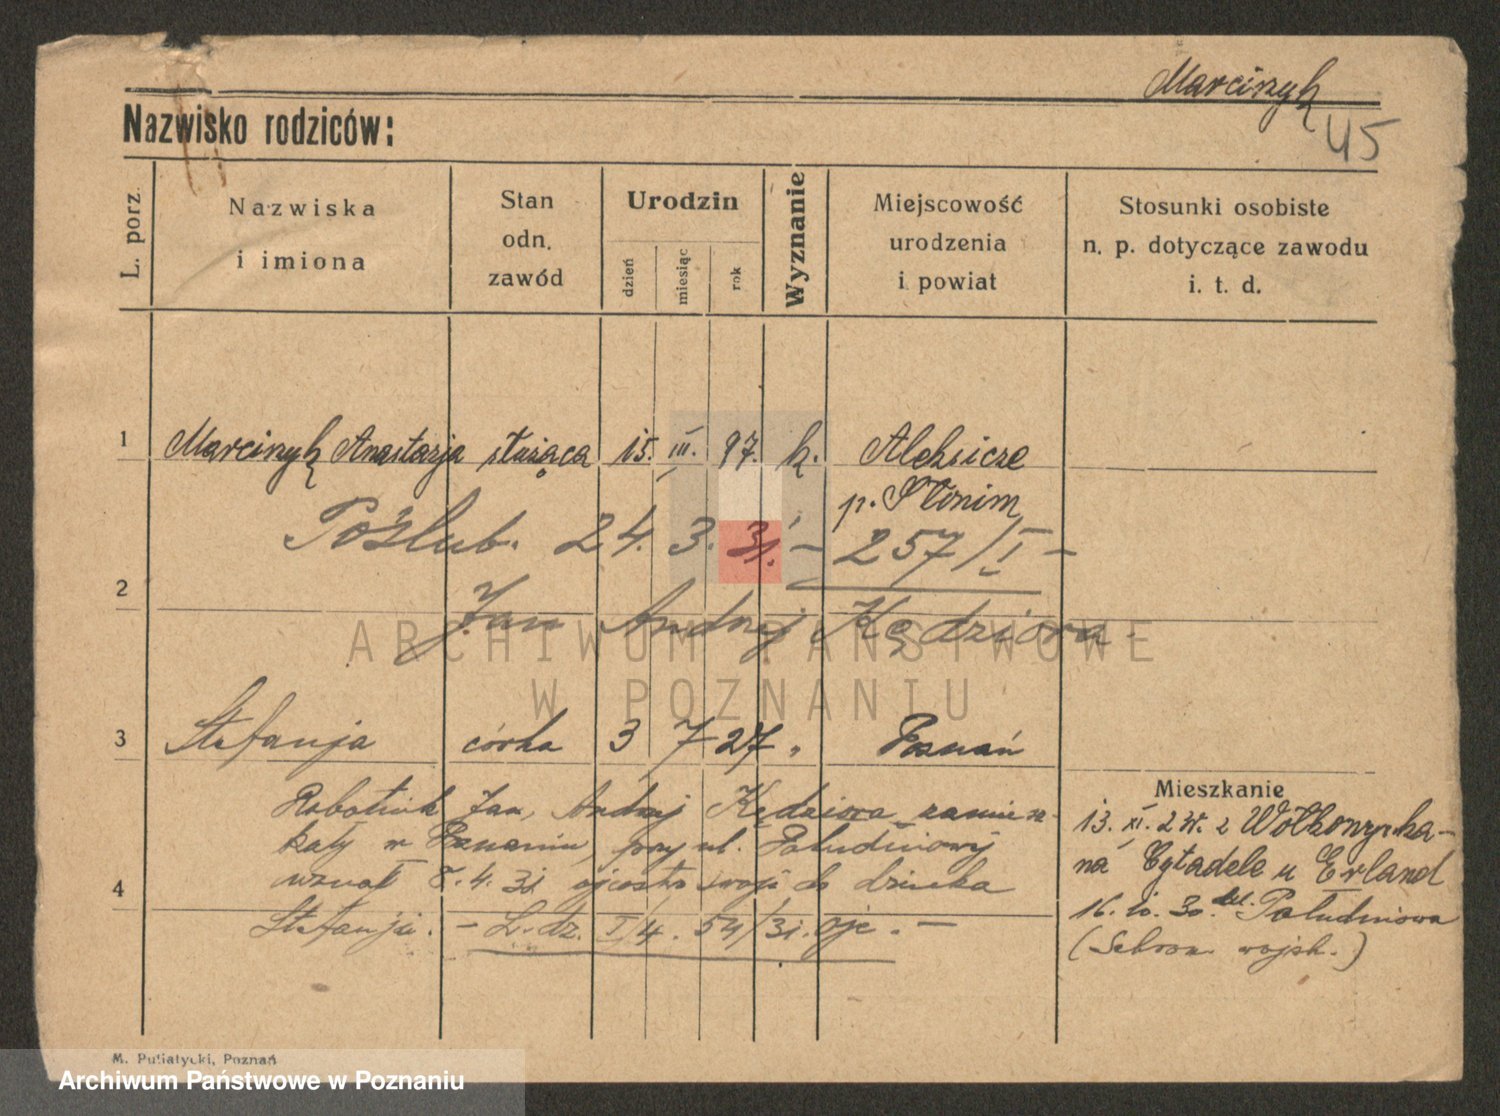 Marciszyk
45
Nazwisko rodziców:
L. porz.
Nazwiska
i imiona
Stan
odn.
zawód
Urodzin
dzień
miesiąc
rok
Wyznanie
Miejscowość
urodzenia
i powiat
Stosunki osobiste
n. p. dotyczące zawodu
i. t. d.
1 Marciszyk Anastazja służąca 15. III. 97. k. Aleksicze
p. Słonim
Poślub. 24. 3. 31. – 257/I –
2
Jan Andrzej Kędziora
ARCHIWUM PAŃSTWOWE
W POZNANIU
3 Stefanja córka 3 7 27 " Poznań
Robotnik Jan, Andrzej Kędziora zamiesz-
kały w Poznaniu, przy ul. Południowej
4 uznał 8. 4. 31 ojcostwo swoje do dziecka
Stefanji. – L. dz. I/4. 54/31. ojc. –
Mieszkanie
13. XI. 2 w. z
na Cytadele u Erland
16. 10. 30. Południowa
( wojsk.)
M. Putiatycki, Poznań
Archiwum Państwowe w Poznaniu